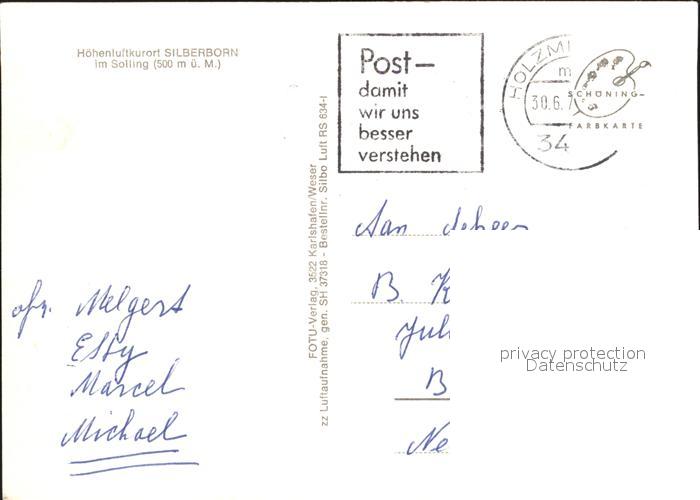 Höhenluftkurort SILBERBORN
im Solling (500 m ü. M.)
Post—
damit
wir uns
besser
verstehen
HOLZMI
m
30.6.7
34
SCHÖNING-
FARBKARTE
FOTU-Verlag, 3522 Karlshafen/Weser
zz Luftaufnahme, gen. SH 37318 - Bestellnr. Silbo Luft RS 634-I
Aan
B K
Jul
B
Ne
afz. Melgert
Marcel
Michael
privacy protection
Datenschutz